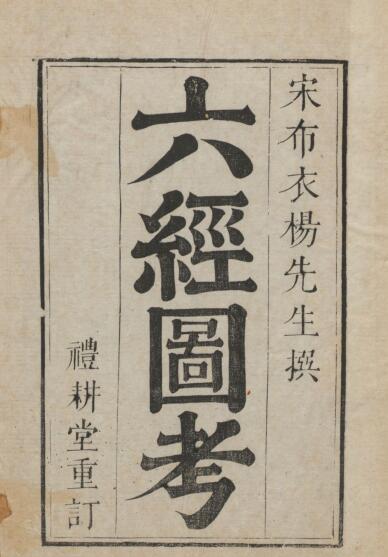 宋布衣楊先生撰
六經圖考
禮耕堂重訂